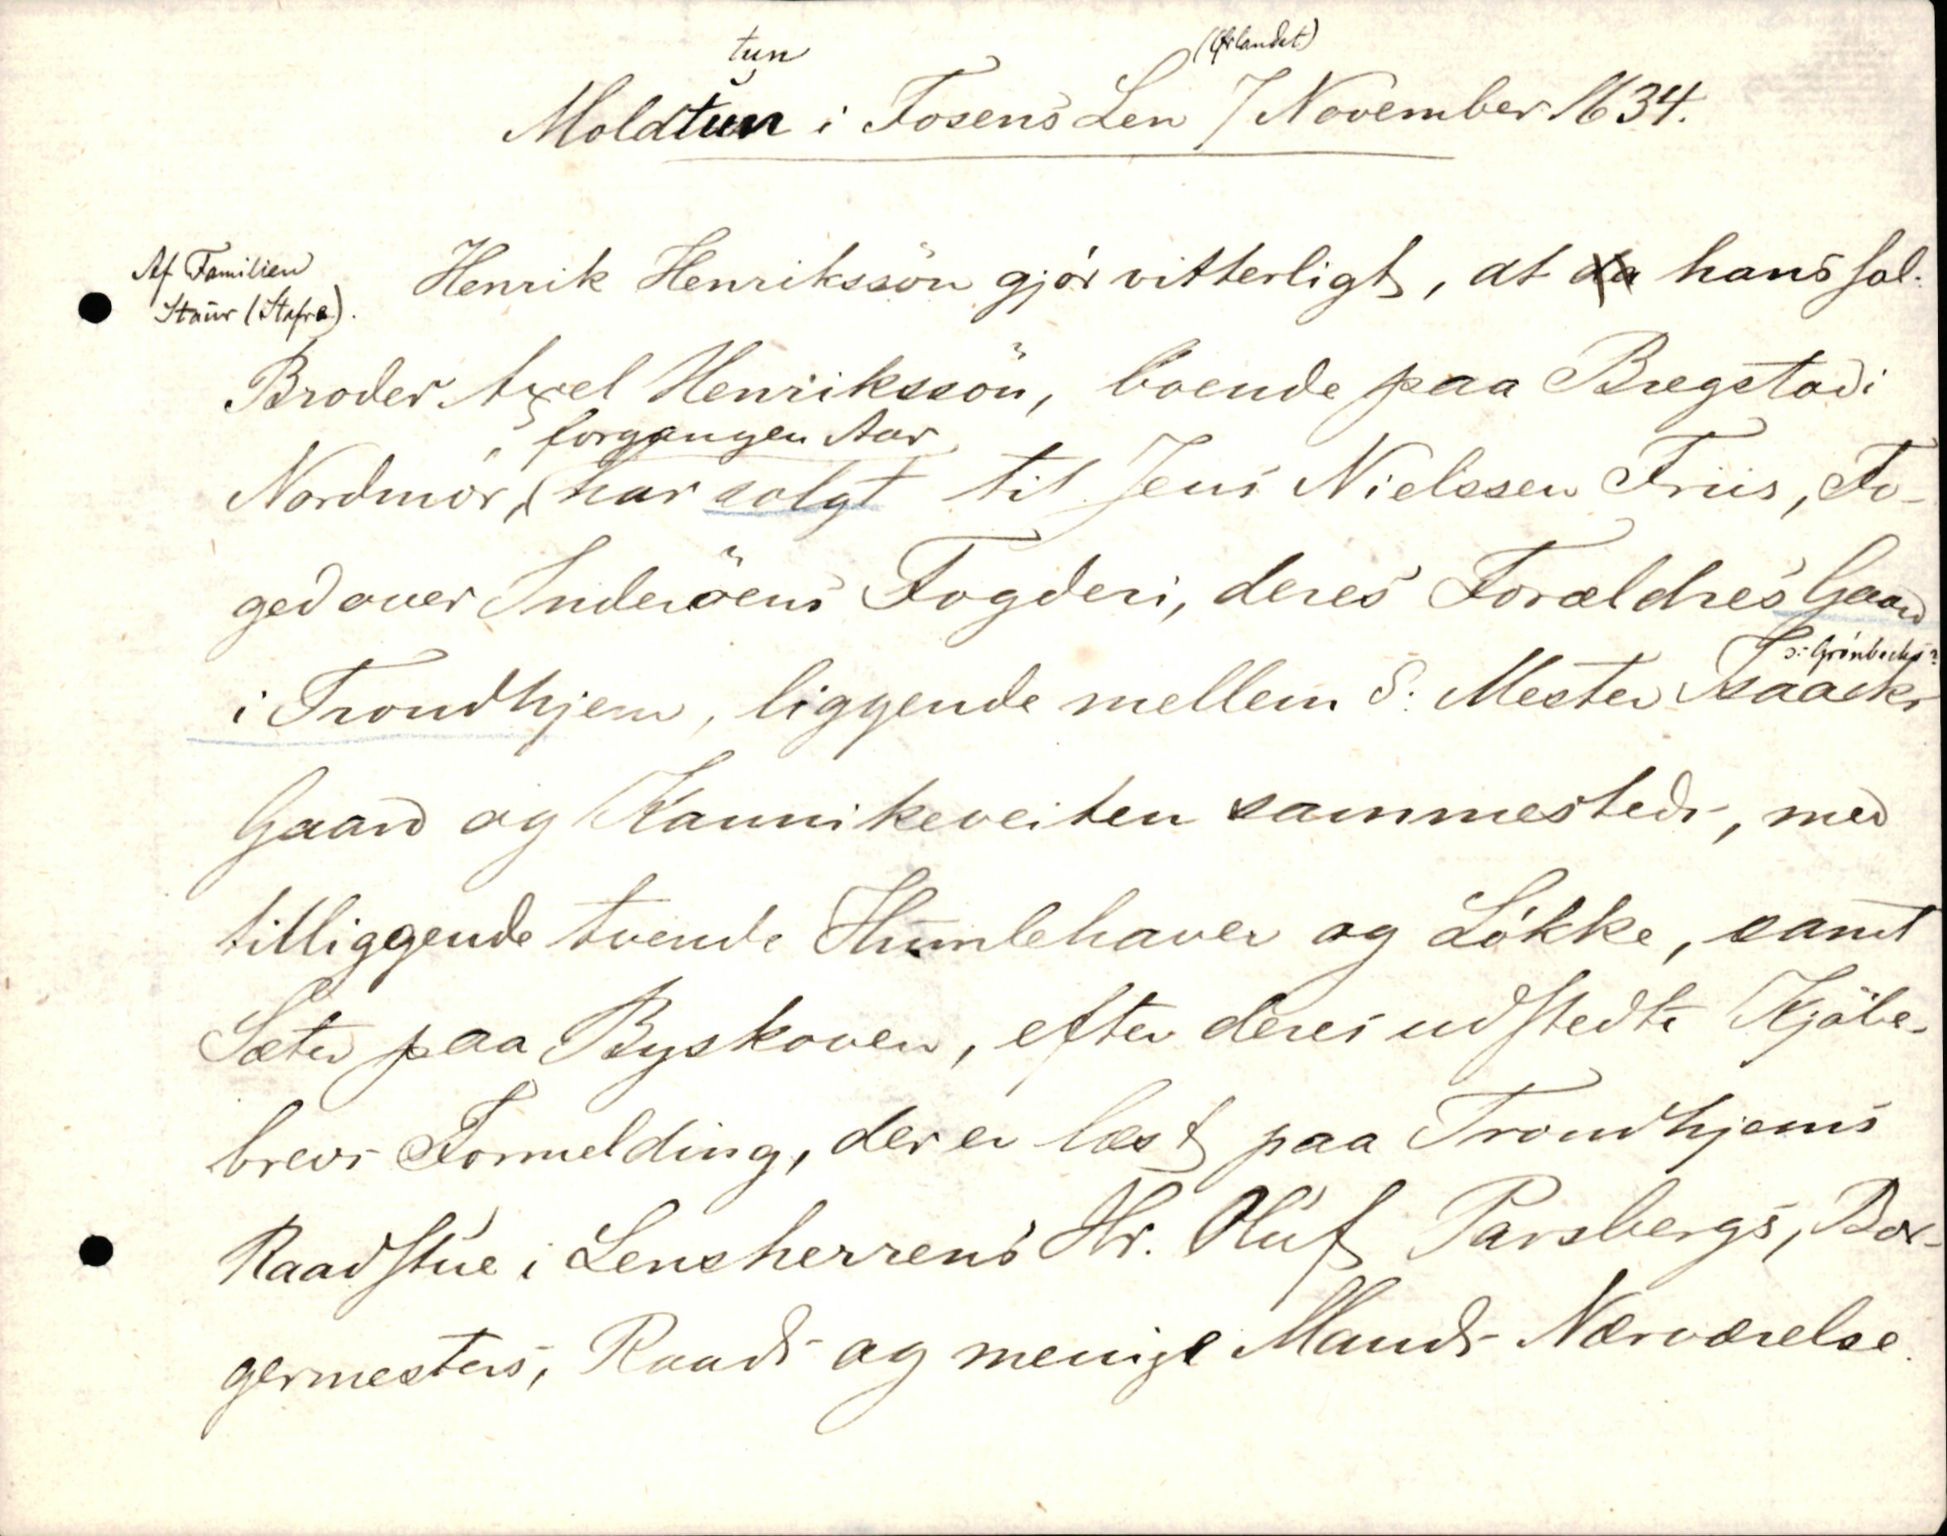 tun (Ørlandet)
Moldtun i Fosens Len 7 November 1634.
Af Familien
Staur (Stafre).
Henrik Henrikssön gjör vitterligt, at da hans sal.
Broder Axel Henrikssön, boende paa Bregstad i
forgangen Aar
Nordmör, har solgt til Jens Nielssen Friis, Fo-
ged over Inderöens Fogderi, deres Forældres Gaard
ɔ: Grönbechs?
i Trondhjem, liggende mellem S. Mester Isaacks
Gaard og Kannikeveiten sammesteds, med
tilliggende tvende Humlehaver og Lökke, samt
Sæter paa Byskoven, efter deres udstedte Kjöbe-
brevs Formelding, der er læst paa Trondhjems
Raadstue i Lensherrens Hr. Oluf Parsbergs, Bor-
germesters, Raads og menige Mands Nærværelse.